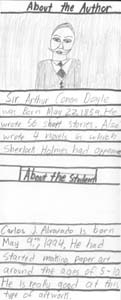 About the Author
Sir Arthur Conan Doyle
was born May 22, 1859. He
wrote 56 short stories. Also
wrote 4 Novels in which
Sherlock Holmes had
About the Student
Carlos J. Alvarado is born
May 9th, 1994. He had
started making paper art
around the ages of 5-10
He is really good at this
type of artwork.